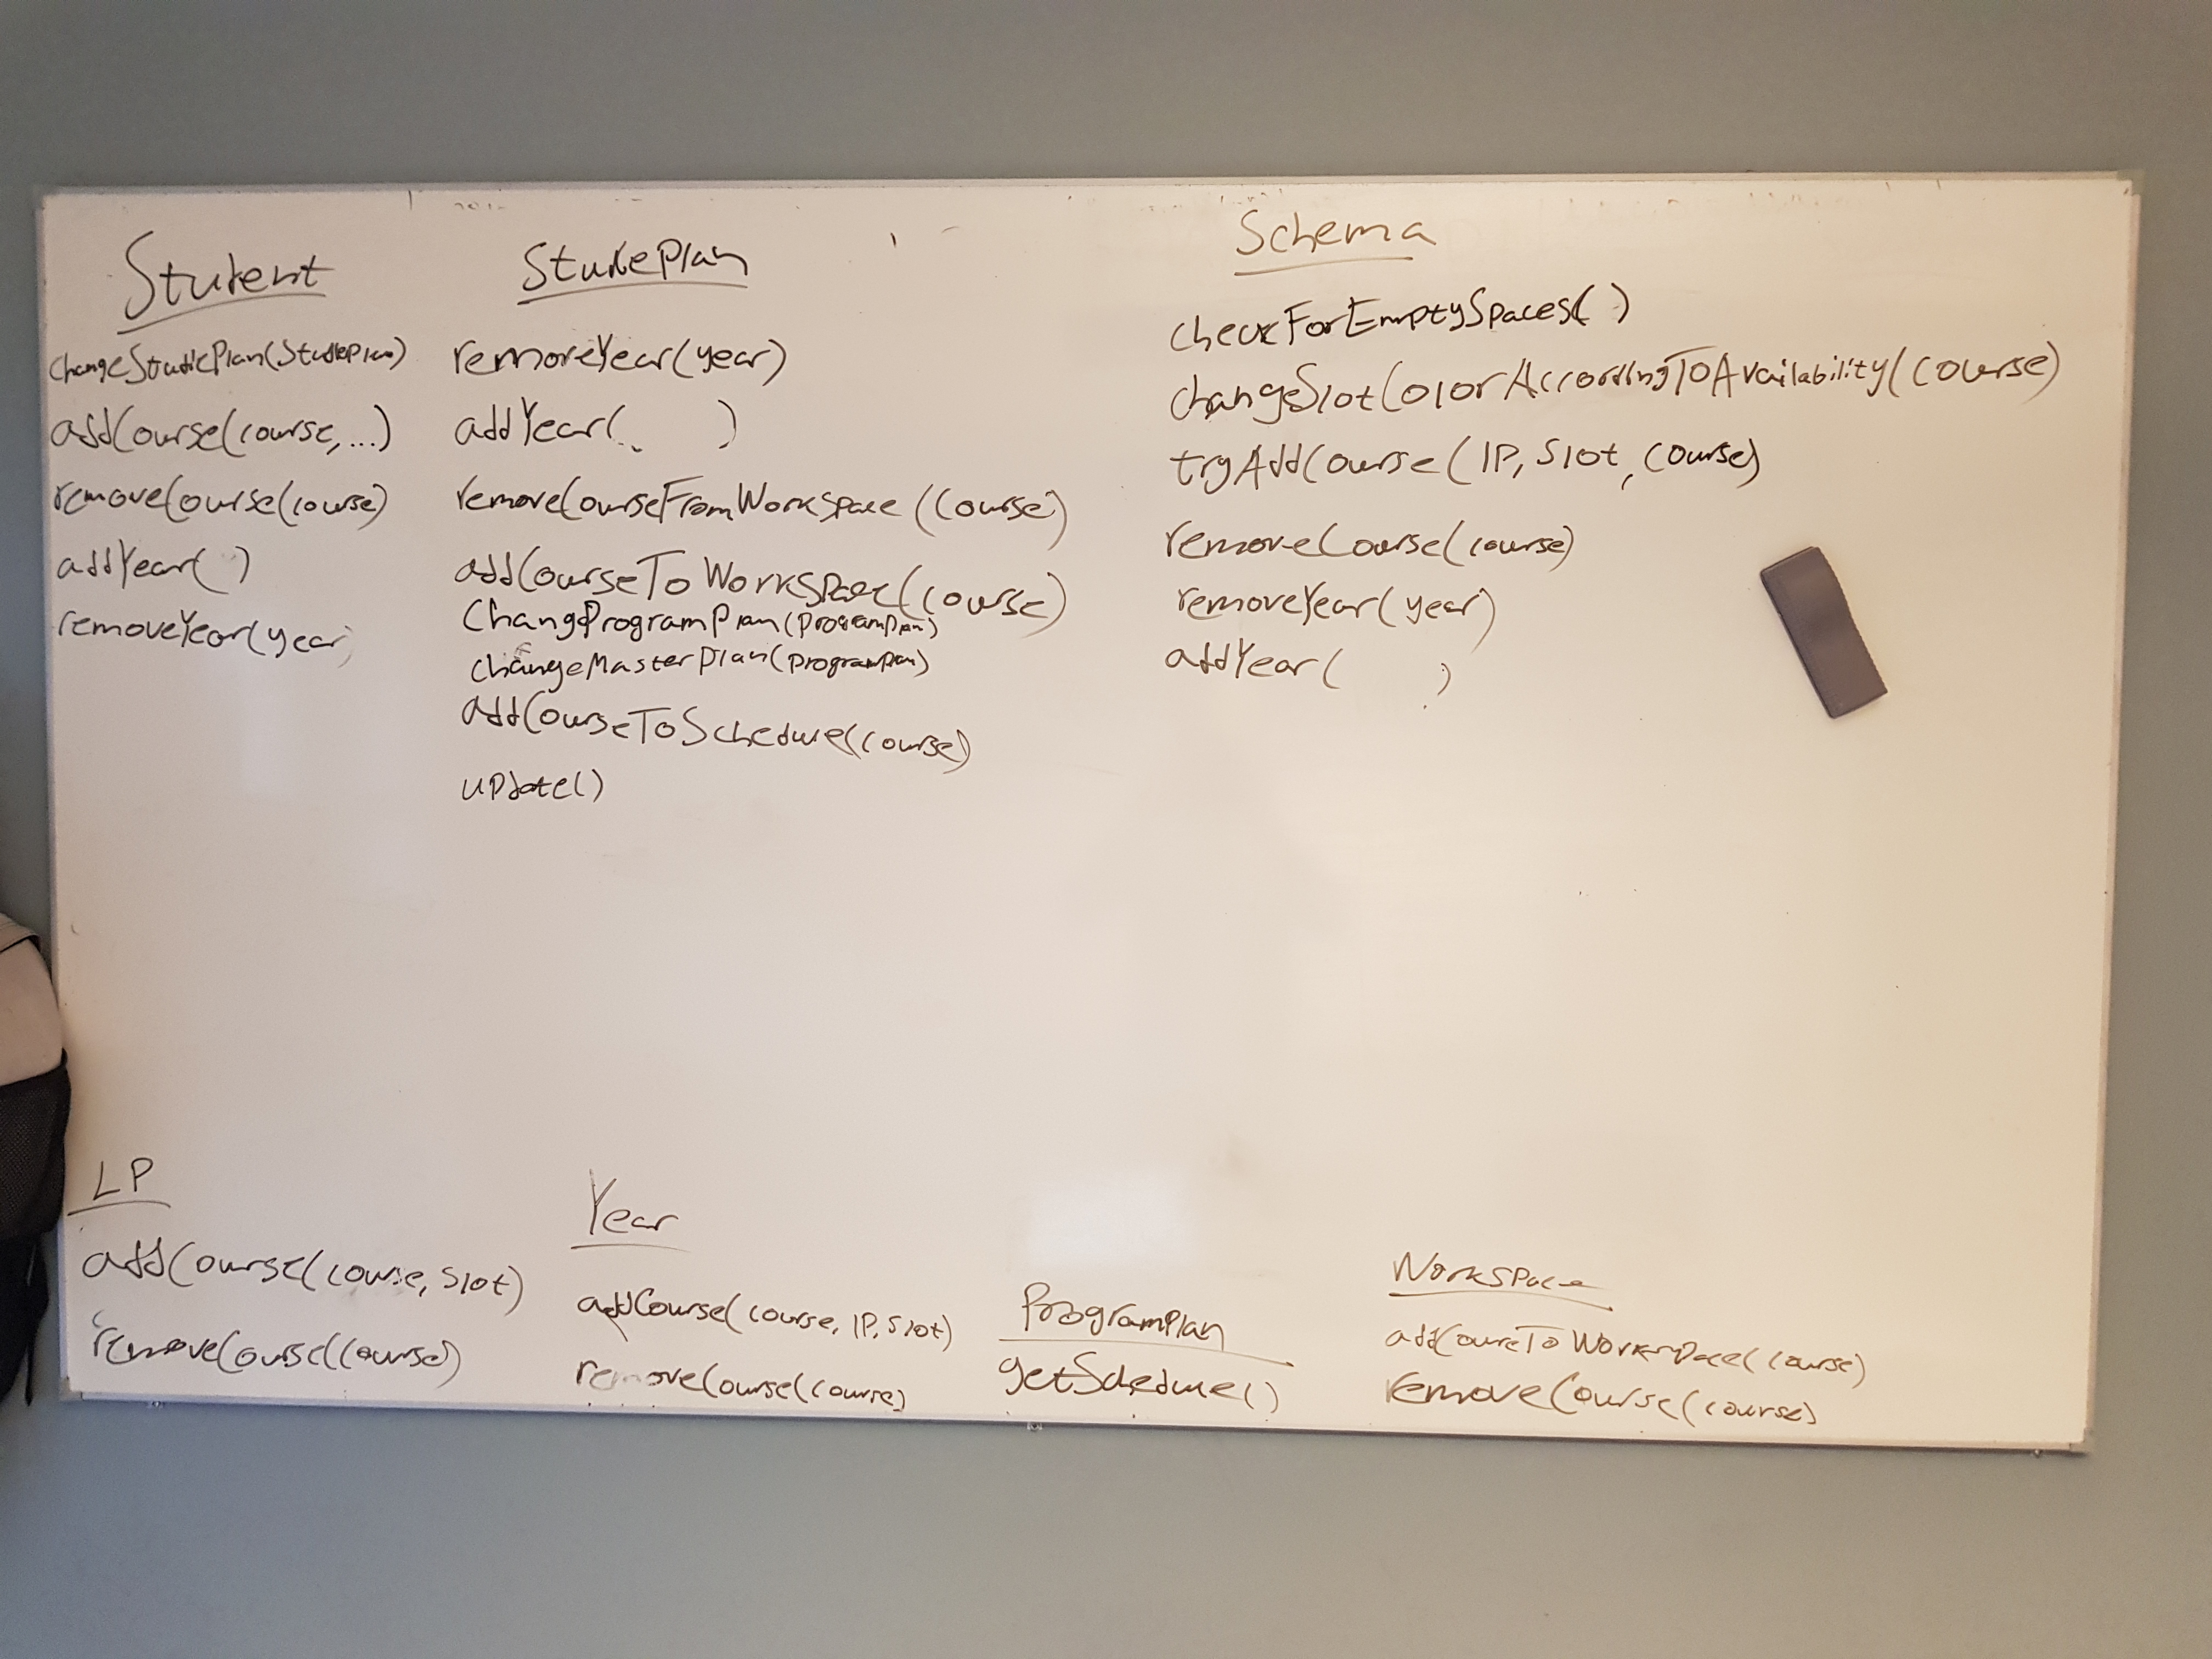 Student
changeStudiePlan(StudiePlan)
addCourse(course,...)
removeCourse(course)
addYear( )
removeYear(year)
StudiePlan
removeYear(year)
addYear( )
removeCourseFromWorkspace(course)
addCourseToWorkspace(course)
changeProgramPlan(programPlan)
changeMasterPlan(programPlan)
addCourseToSchedule(course)
update()
Schema
checkForEmptySpaces( )
changeSlotColorAccordingToAvailability(course)
tryAddCourse(lP, slot, course)
removeCourse(course)
removeYear(year)
addYear( )
LP
addCourse(course, slot)
removeCourse(course)
Year
addCourse(course, lP, slot)
removeCourse(course)
ProgramPlan
getSchedule()
Workspace
addCourseToWorkspace(course)
removeCourse(course)